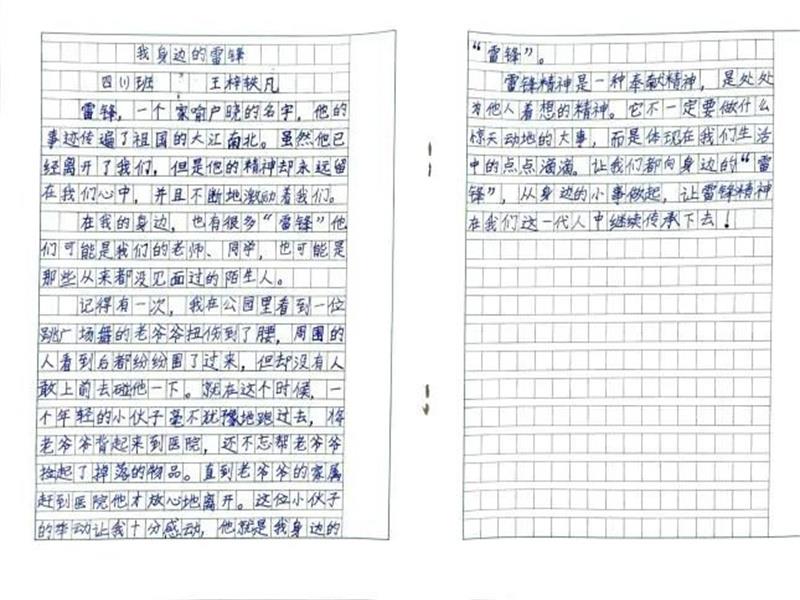 我身边的雷锋
四(1)班 王梓轶凡
雷锋，一个家喻户晓的名字，他的
事迹传遍了祖国的大江南北。虽然他已
经离开了我们，但是他的精神却永远留
在我们心中，并且不断地激励着我们。
在我的身边，也有很多“雷锋”他
们可能是我们的老师、同学，也可能是
那些从来都没见面过的陌生人。
记得有一次，我在公园里看到一位
跳广场舞的老爷爷扭伤到了腰，周围的
人看到后都纷纷围了过来，但却没有人
敢上前去碰他一下。就在这个时候，一
个年轻的小伙子毫不犹豫地跑过去，将
老爷爷背起来到医院，还不忘帮老爷爷
捡起了掉落的物品。直到老爷爷的家属
赶到医院他才放心地离开。这位小伙子
的举动让我十分感动，他就是我身边的
“雷锋”。
雷锋精神是一种奉献精神，是处处
为他人着想的精神。它不一定要做什么
惊天动地的大事，而是体现在我们生活
中的点点滴滴。让我们都向身边的“雷
锋”，从身边的小事做起，让雷锋精神
在我们这一代人中继续传承下去！